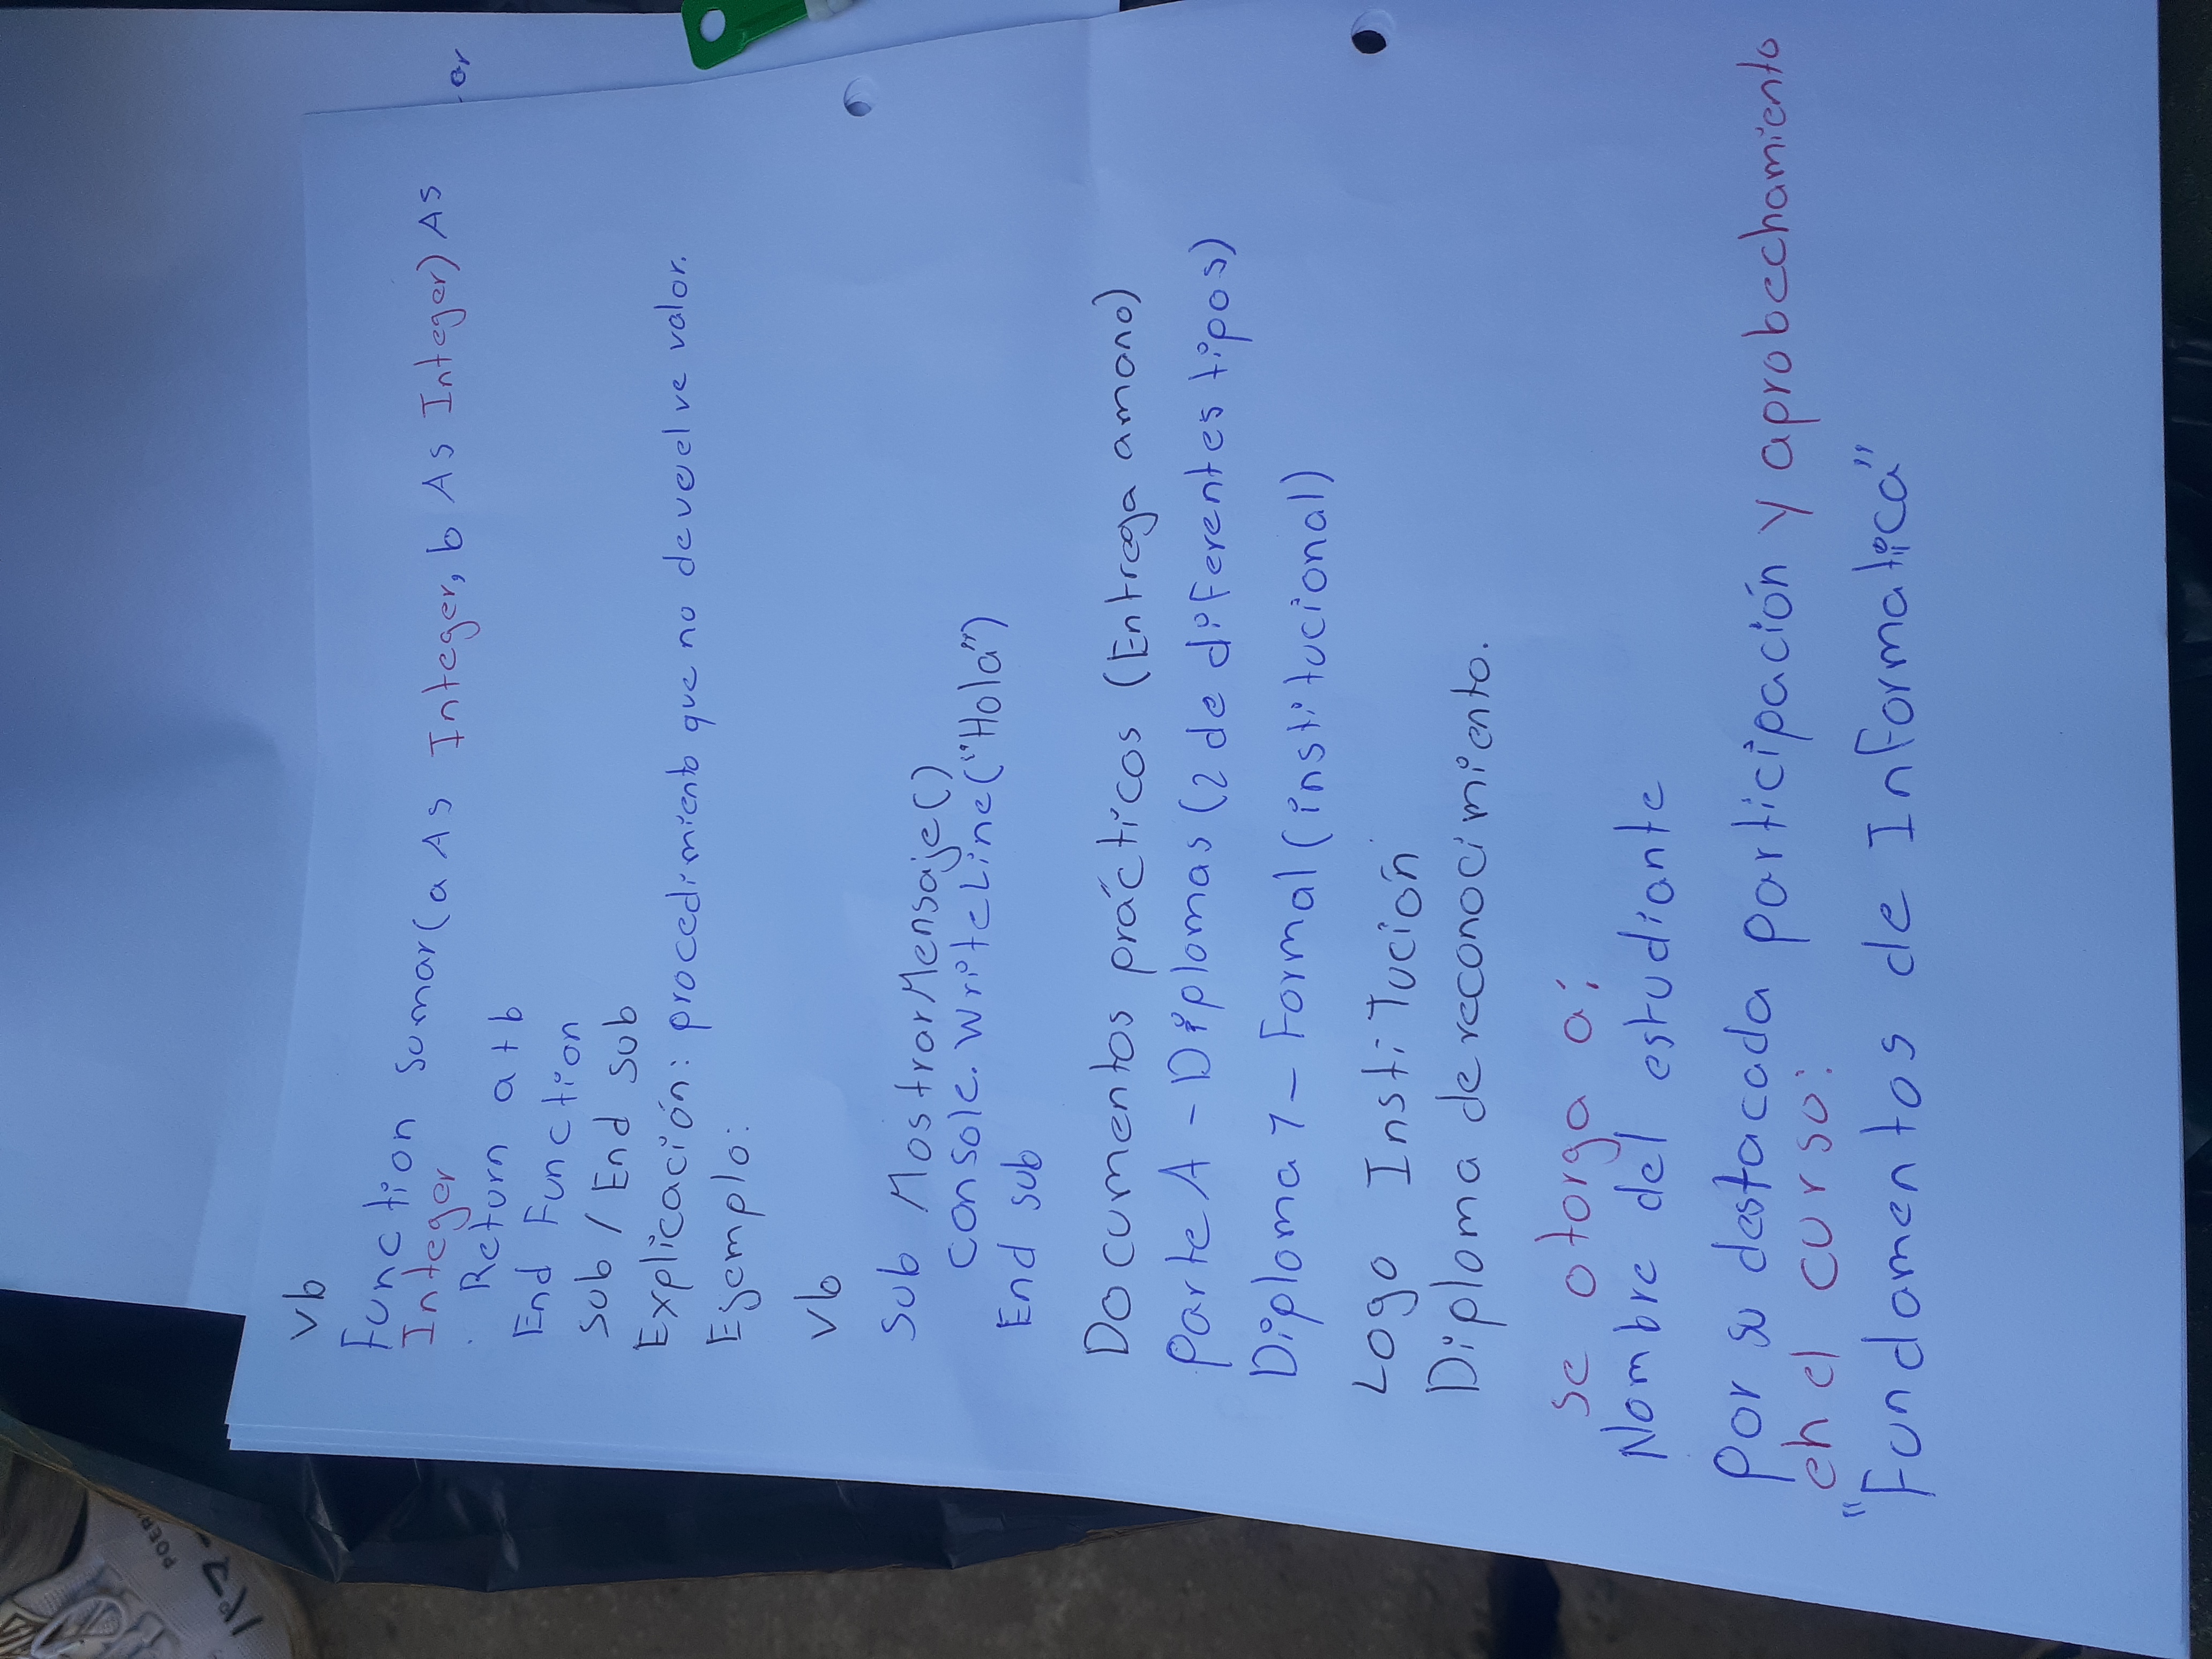 or
vb
Function sumar(a As Integer, b As Integer) As
Integer
. Return a + b
End Function
Sub / End Sub
Explicación: procedimiento que no devuelve valor.
Ejemplo:
vb
Sub MostrarMensaje()
Console.WriteLine("Hola")
End sub
Documentos prácticos (Entrega amano)
Parte A - Diplomas (2 de diferentes tipos)
Diploma 1 - Formal (institucional)
Logo Institución
Diploma de reconocimiento.
se otorga a:
Nombre del estudiante
Por su destacada participación y aprobechamiento
en el curso:
"Fundamentos de Informatica"